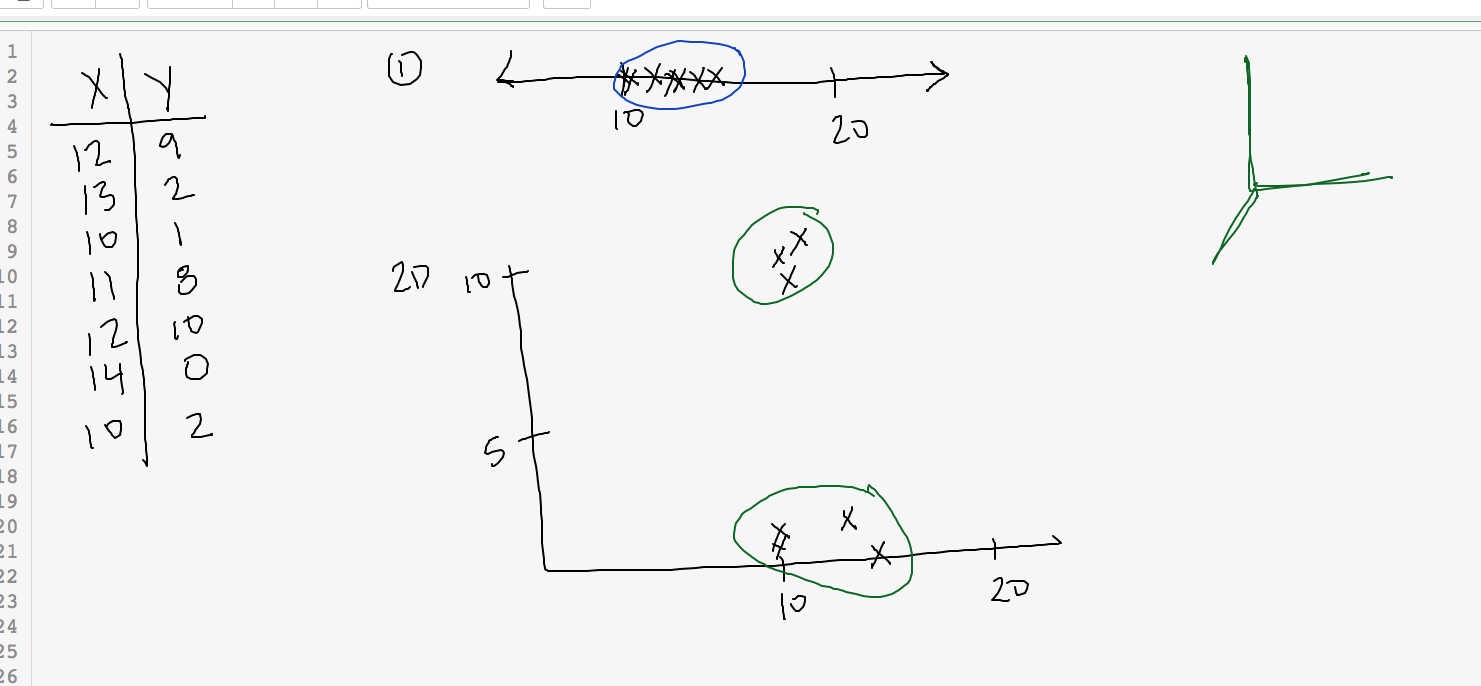 1
2
3
4
5
6
7
8
9
10
11
12
13
14
15
16
17
18
19
20
21
22
23
24
25
26
X Y
12 9
13 2
10 1
11 8
12 10
14 0
10 2
①
10 20
2D 10
5
10 20